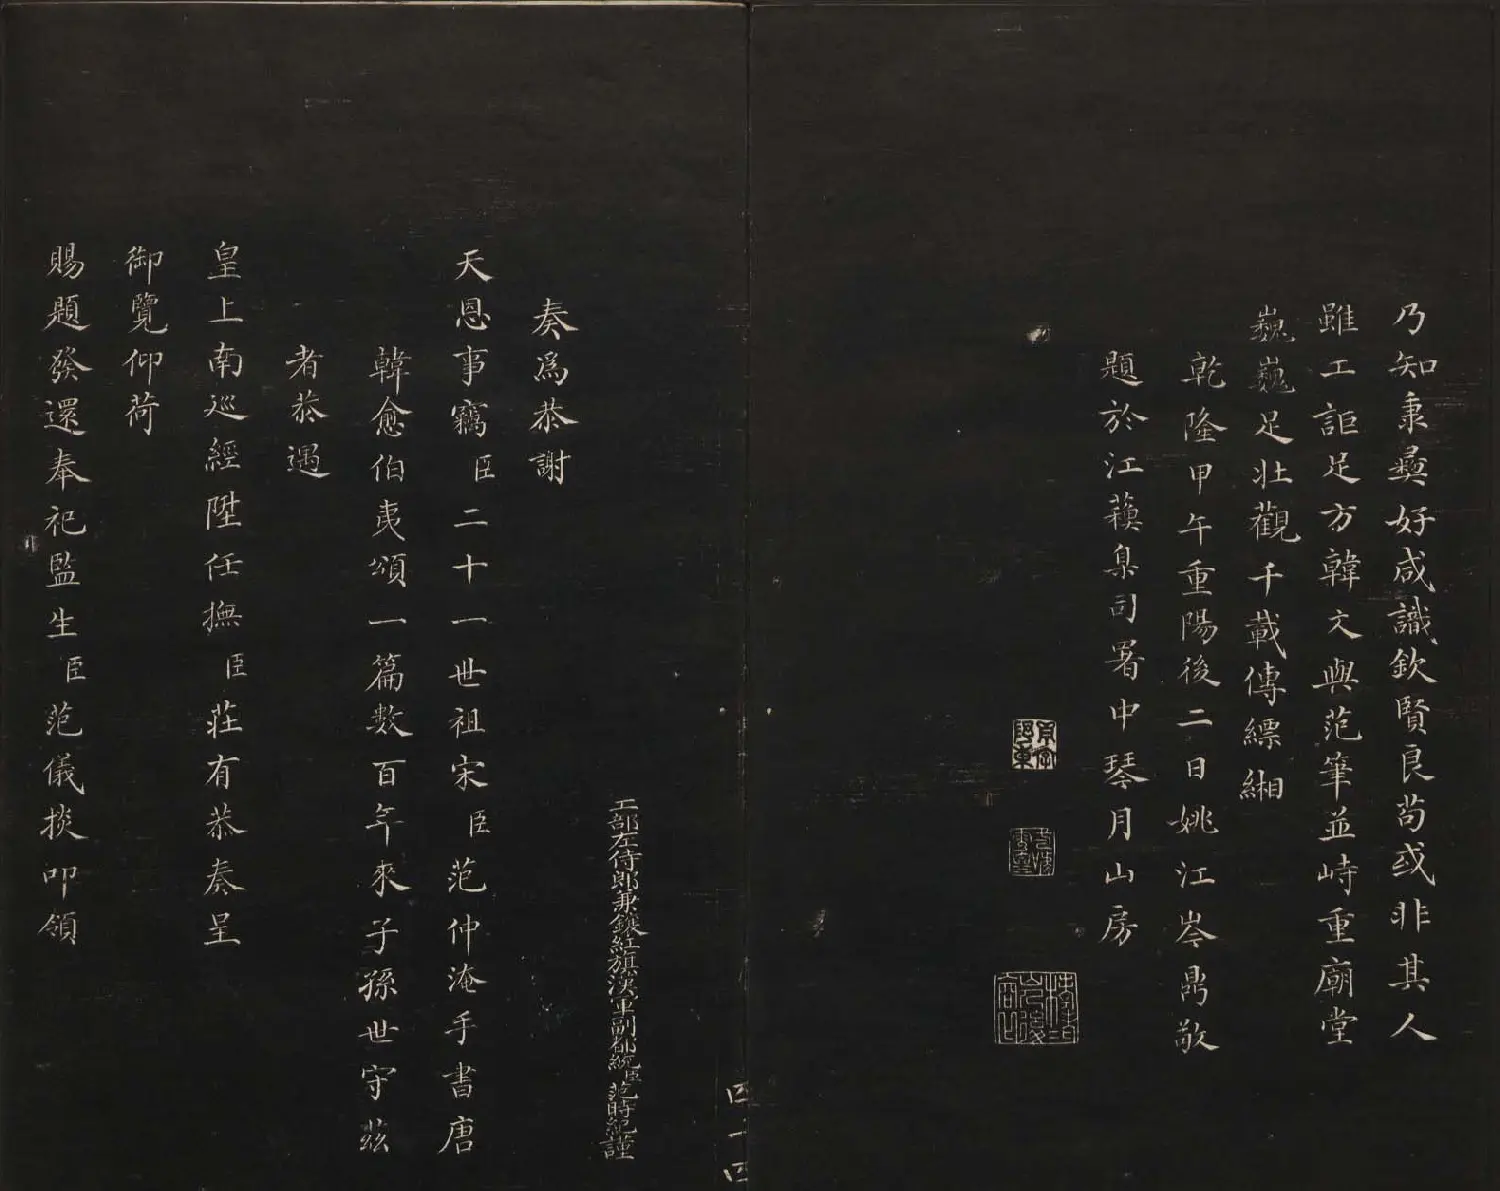 乃知秉彝好咸識欽賢良苟或非其人
雖工詎足方韓文與范筆並峙重廟堂
巍巍足壯觀千載傳縹緗
乾隆甲午重陽後二日姚江岑鼎敬
題於江蘇臬司署中琴月山房
四十四
工部左侍郎兼鑲紅旗漢軍副都統臣范時紀謹
奏爲恭謝
天恩事竊臣二十一世祖宋臣范仲淹手書唐
韓愈伯夷頌一篇數百年來子孫世守茲
者恭遇
皇上南巡經陞任撫臣莊有恭奏呈
御覽仰荷
賜題發還奉祀監生臣范儀掞叩領